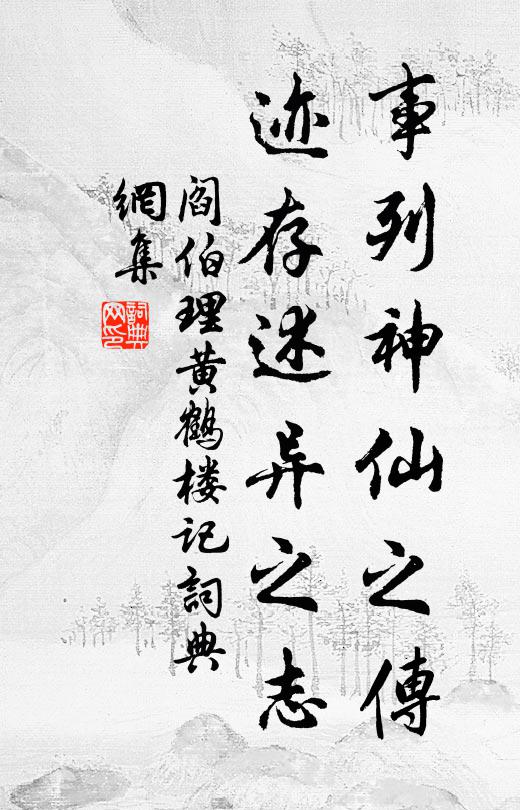 事列神仙之傳
迹存述异之志
阎伯理黄鶴楼记詞典
網集
詞典
网印